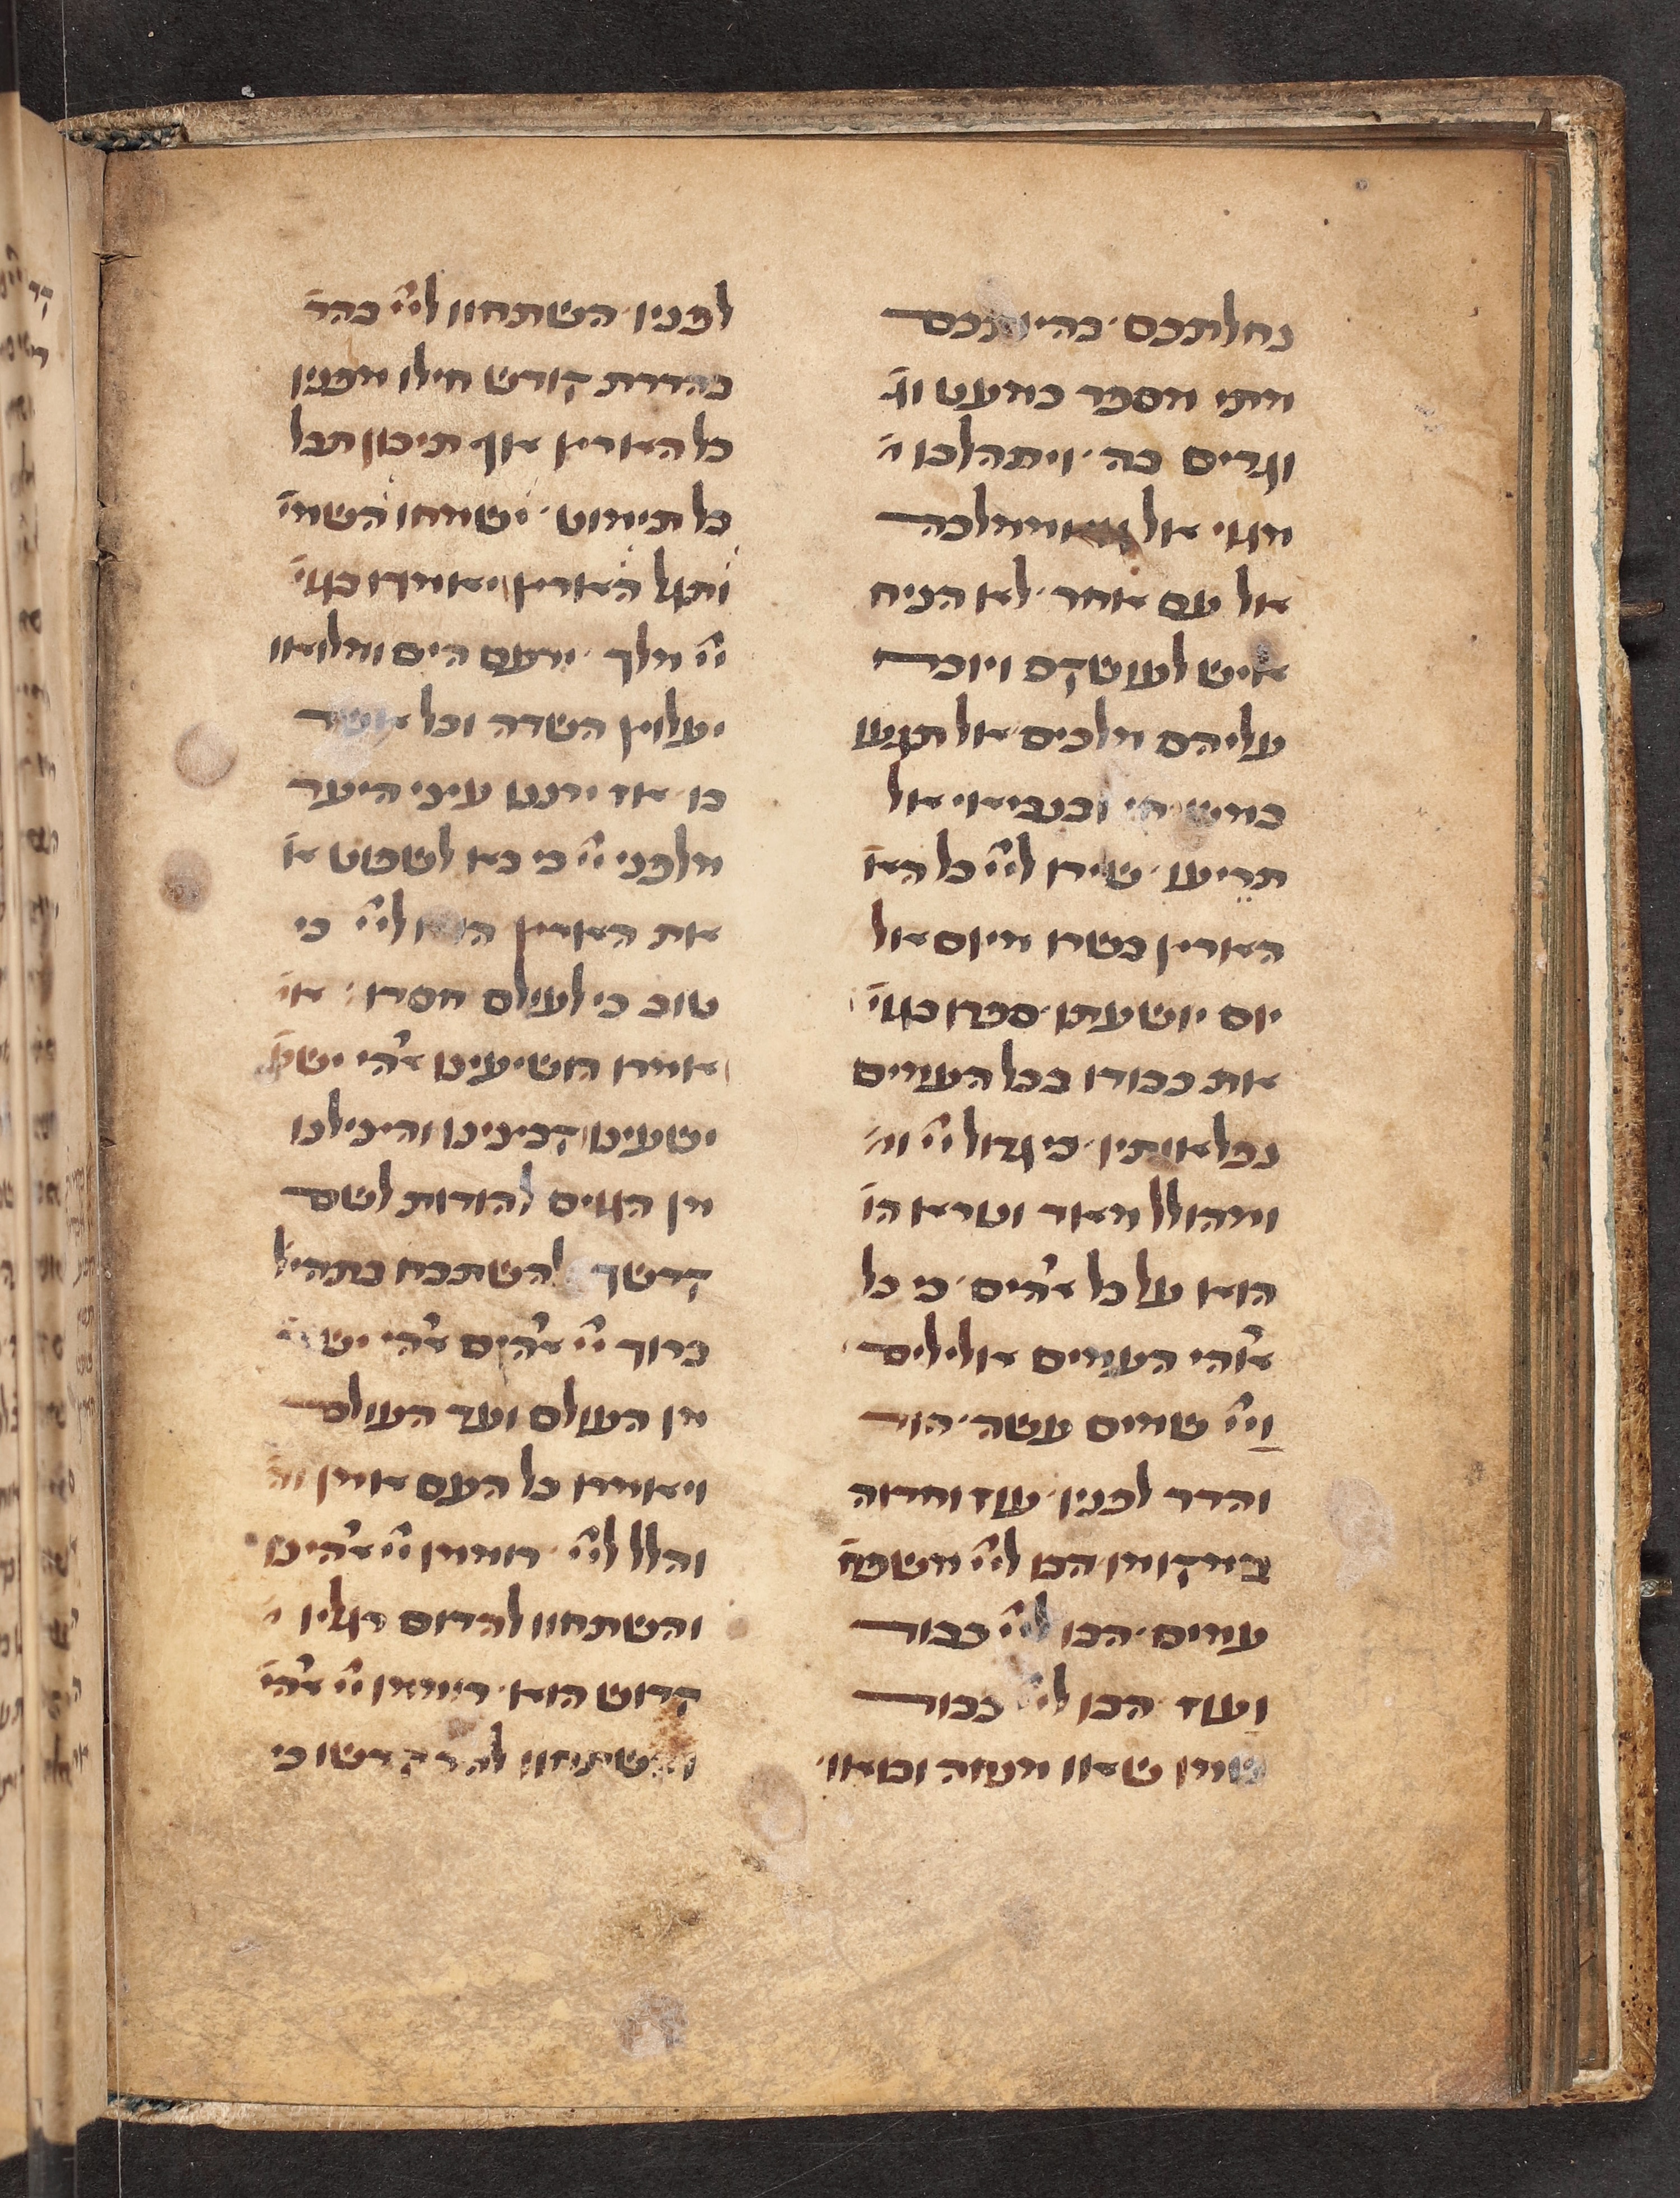 נחלתכם · בהיותכם
מתי מספר כמעט וג
וגרים בה · ויתהלכו י
מגוי אל וממלכה
אל עם אחר · לא הניח
איש לעושקם ויוכח
עליהם מלכים אל תגעו
במשיחי ובנביאי אל
תריעו · שירו לייי כל הא
הארץ בשרו מיום אל
יום ישועתו · ספרו בגוי
את כבודו בכל העמים
נפלאותיו · כי גדול ייי ומ
ומהולל מאד ונורא הו
הוא על כל אלהים · כי כל
אלהי העמים אלילים
וייי שמים עשה · הוד
והדר לפניו · עוז וחדוה
במקומו הבו לייי משפח
עמים · הבו לייי כבוד
ועוז · הבו לייי כבוד
שמו שאו מנחה ובואו
לפניו · השתחוו לייי בהד
בהדרת קודש חילו מפניו
כל הארץ אף תיכון תבל
בל תימוט · ישמחו השמי
ותגל הארץ ויאמרו בגוי
ייי מלך · ירעם הים ומלואו
יעלוץ השדה וכל אשר
בו · אז ירננו עיצי היער
מלפני ייי כי בא לשפוט א
את הארץ הודו לייי כי
טוב כי לעולם חסדו · או
ואמרו הושיעינו אלהי ישע
ישעינו וקבצינו והצילנו
מן הגוים להודות לשם
קדשך להשתבח בתהיל
ברוך ייי אלהים אלהי יש
מן העולם ועד העולם
ויאמרו כל העם אמן וה
והלל לייי · רוממו ייי אלהינו
והשתחוו להדום רגליו י
קדוש הוא · רוממו ייי אלהי
והשתחוו להר קדשו כי